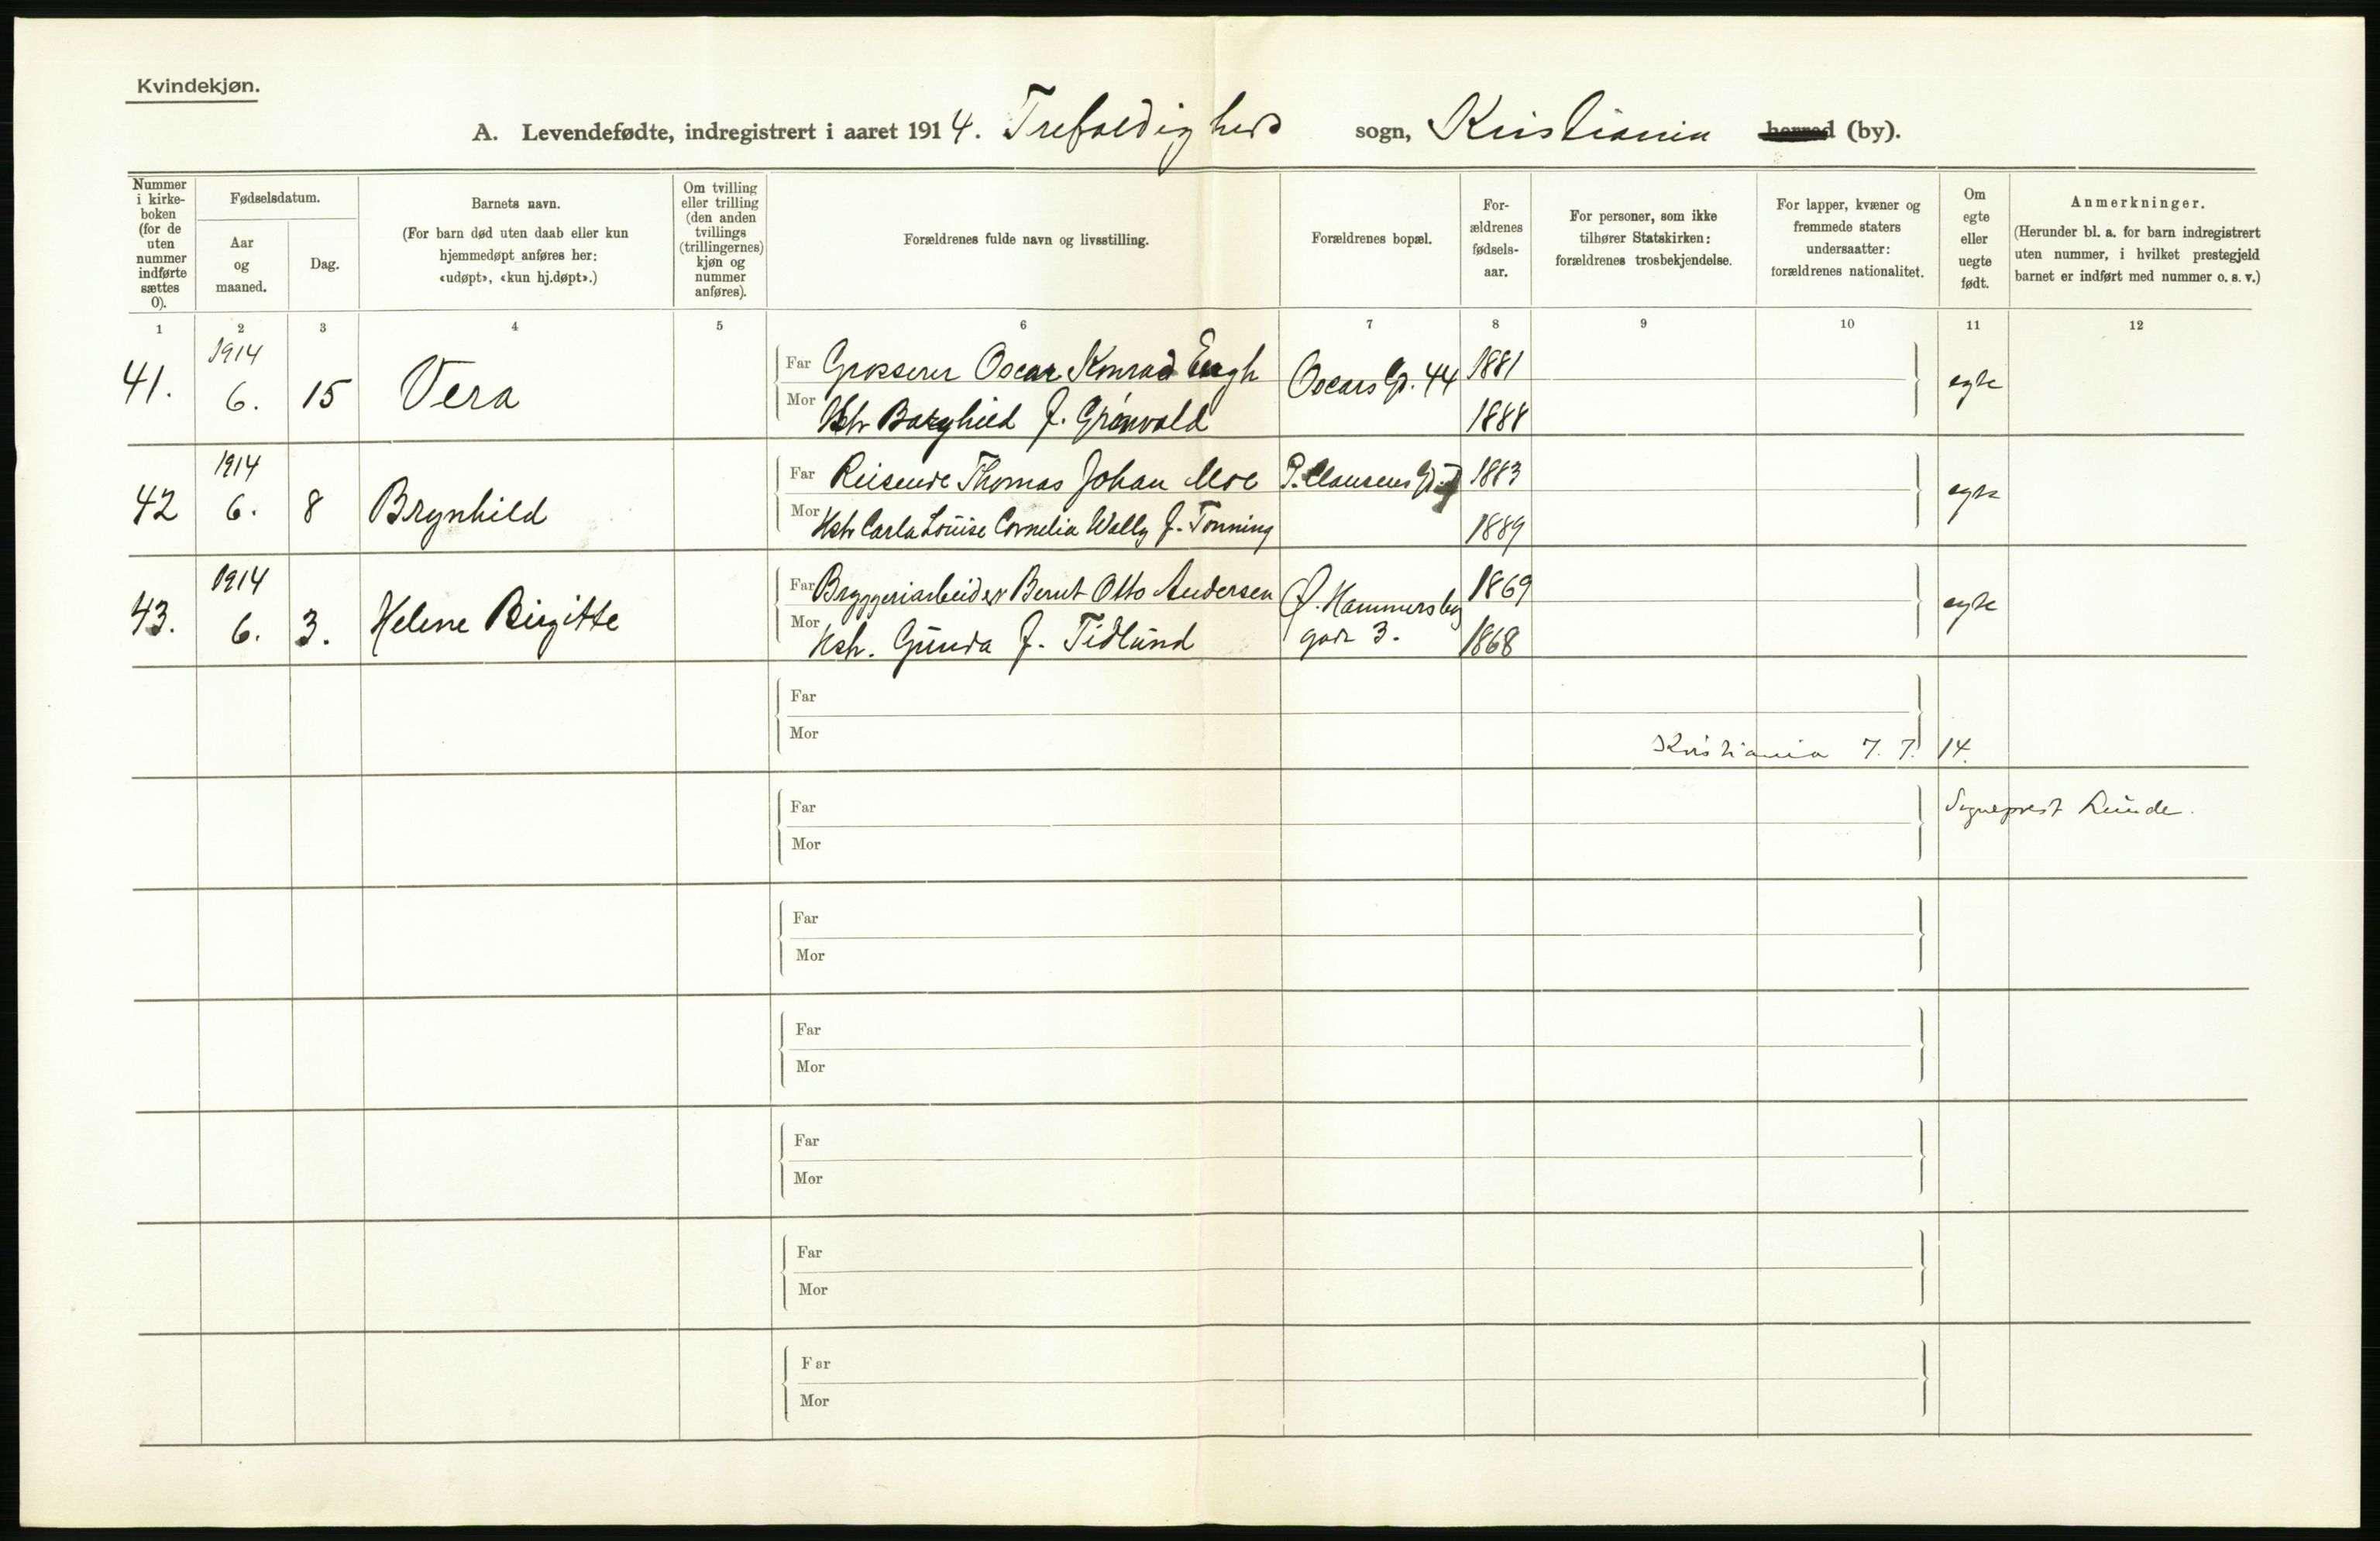 Kvindekjøn.
A. Levendefødte, indregistrert i aaret 1914. Trefoldigheds sogn, Kristiania herred (by).
Nummer i kirke-boken (for de uten nummer indførte sættes 0).
Fødselsdatum.
Aar og maaned.
Dag.
Barnets navn.
(For barn død uten daab eller kun hjemmedøpt anføres her: «udøpt», «kun hj.døpt».)
Om tvilling eller trilling (den anden tvillings (trillingernes) kjøn og nummer anføres).
Forældrenes fulde navn og livsstilling.
Forældrenes bopæl.
For-ældrenes fødsels-aar.
For personer, som ikke tilhører Statskirken: forældrenes trosbekjendelse.
For lapper, kvæner og fremmede staters undersaatter: forældrenes nationalitet.
Om egte eller uegte født.
Anmerkninger.
(Herunder bl. a. for barn indregistrert uten nummer, i hvilket prestegjeld barnet er indført med nummer o. s. v.)
1 2 3 4 5 6 7 8 9 10 11 12
41. 1914 6. 15 Vera
Far Grosserer Oscar Konrad Oscars Gd. 44 1881 egte
Mor Hstr Borghild f. Grønvold 1888
42 1914 6. 8 Brynhild
Far Reisende Thomas Johan Moe P. Clausens Gd. 1883 egte
Mor Hstr Carla Louise Cornelia Wally f. Tonning 1889
43. 1914 6. 3. Helene Birgitte
Far Bryggeriarbeider Bernt Otto Andersen Ø. Hammersborg 1869 egte
Mor Hstr. Gunda f. Tidlund gade 3. 1868
Far
Mor
Kristiania 7. 7. 14.
Far
Sogneprest Lunde.
Mor
Far
Mor
Far
Mor
Far
Mor
Far
Mor
Far
Mor